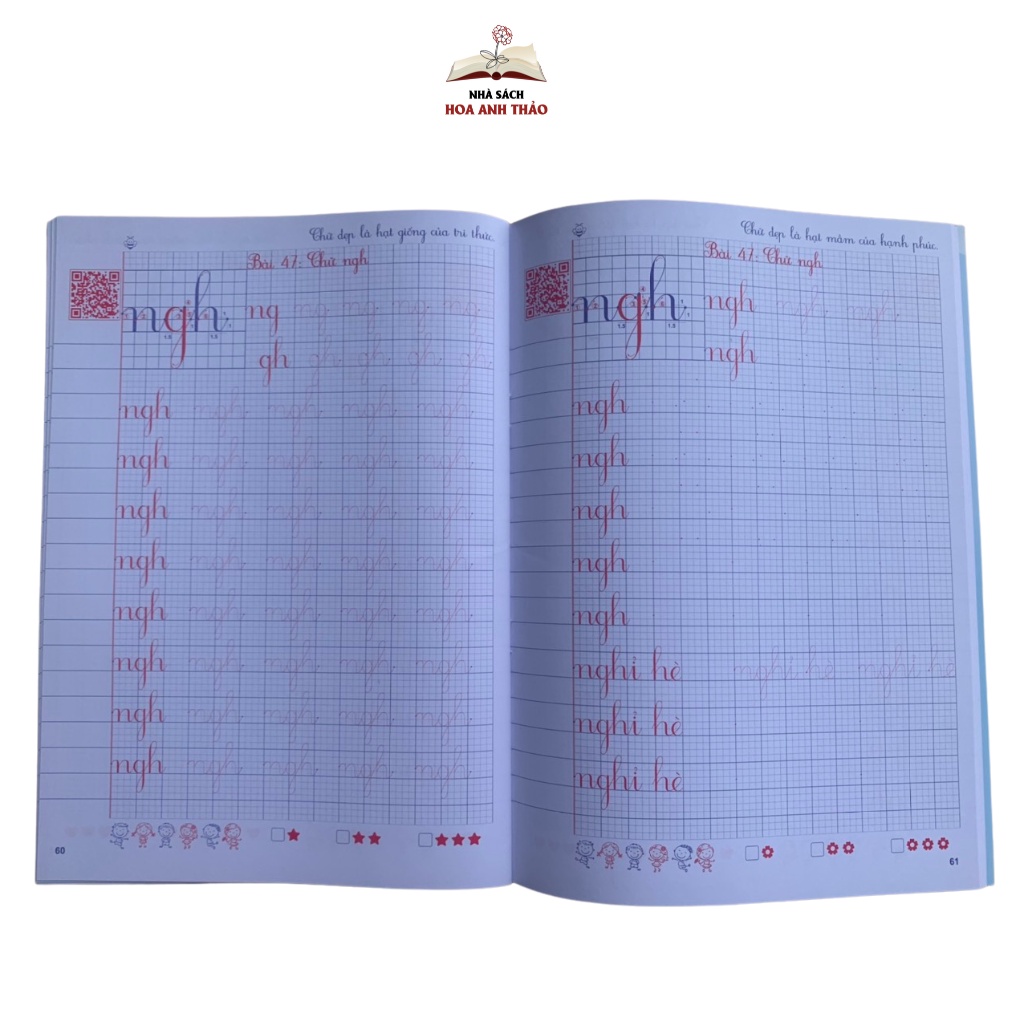 NHÀ SÁCH
HOA ANH THẢO
Chữ đẹp là hạt giống của tri thức.
Bài 47: Chữ ngh
ngh
1.5 1.5
ng ng ng ng ng ng
gh gh gh gh gh
ngh ngh ngh ngh ngh
ngh ngh ngh ngh ngh
ngh ngh ngh ngh ngh
ngh ngh ngh ngh ngh
ngh ngh ngh ngh ngh
ngh ngh ngh ngh ngh
ngh ngh ngh ngh ngh
ngh ngh ngh ngh ngh
60
Chữ đẹp là hạt mầm của hạnh phúc.
Bài 47: Chữ ngh
ngh
1.5 1.5
ngh ngh ngh
ngh
ngh
ngh
ngh
ngh
ngh
nghỉ hè nghỉ hè nghỉ hè
nghỉ hè
nghỉ hè
61